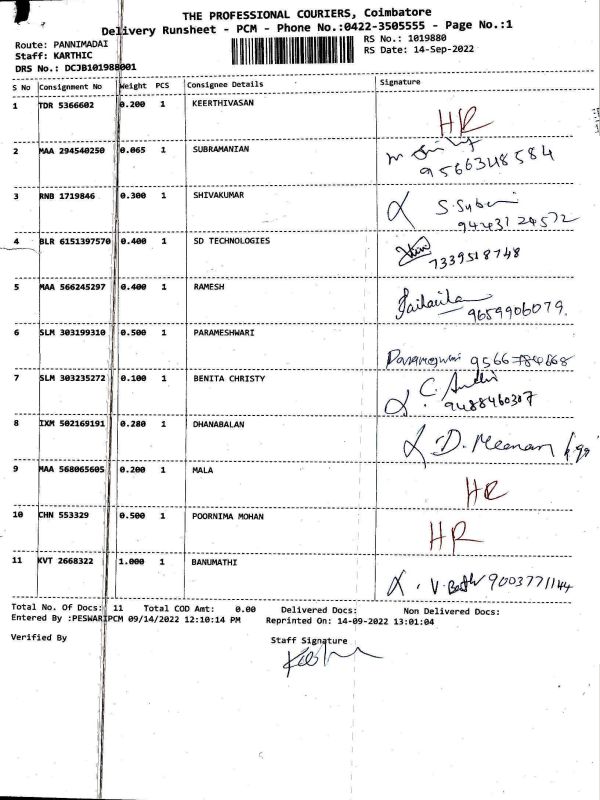 THE PROFESSIONAL COURIERS, Coimbatore
Delivery Runsheet - PCM - Phone No.:0422-3505555 - Page No.:1
Route: PANNIMADAI RS No.: 1019880
Staff: KARTHIC RS Date: 14-Sep-2022
DRS No.: DCJB101988001
S No Consignment No Weight PCS Consignee Details Signature
1 TDR 5366602 0.200 1 KEERTHIVASAN
HR
2 MAA 294540250 0.065 1 SUBRAMANIAN
9566348584
3 RNB 1719846 0.300 1 SHIVAKUMAR
9443124572
4 BLR 6151397570 0.400 1 SD TECHNOLOGIES
7339518748
5 MAA 566245297 0.400 1 RAMESH
9659906079.
6 SLM 303199310 0.500 1 PARAMESHWARI
7 SLM 303235272 0.100 1 BENITA CHRISTY
9488460307
8 IXM 502169191 0.280 1 DHANABALAN
D. Meenam
9 MAA 568065605 0.200 1 MALA
HR
10 CHN 553329 0.500 1 POORNIMA MOHAN
HR
11 KVT 2668322 1.000 1 BANUMATHI
9003771144
Total No. Of Docs: 11 Total COD Amt: 0.00 Delivered Docs: Non Delivered Docs:
Entered By :PESWARIPCM 09/14/2022 12:10:14 PM Reprinted On: 14-09-2022 13:01:04
Verified By Staff Signature